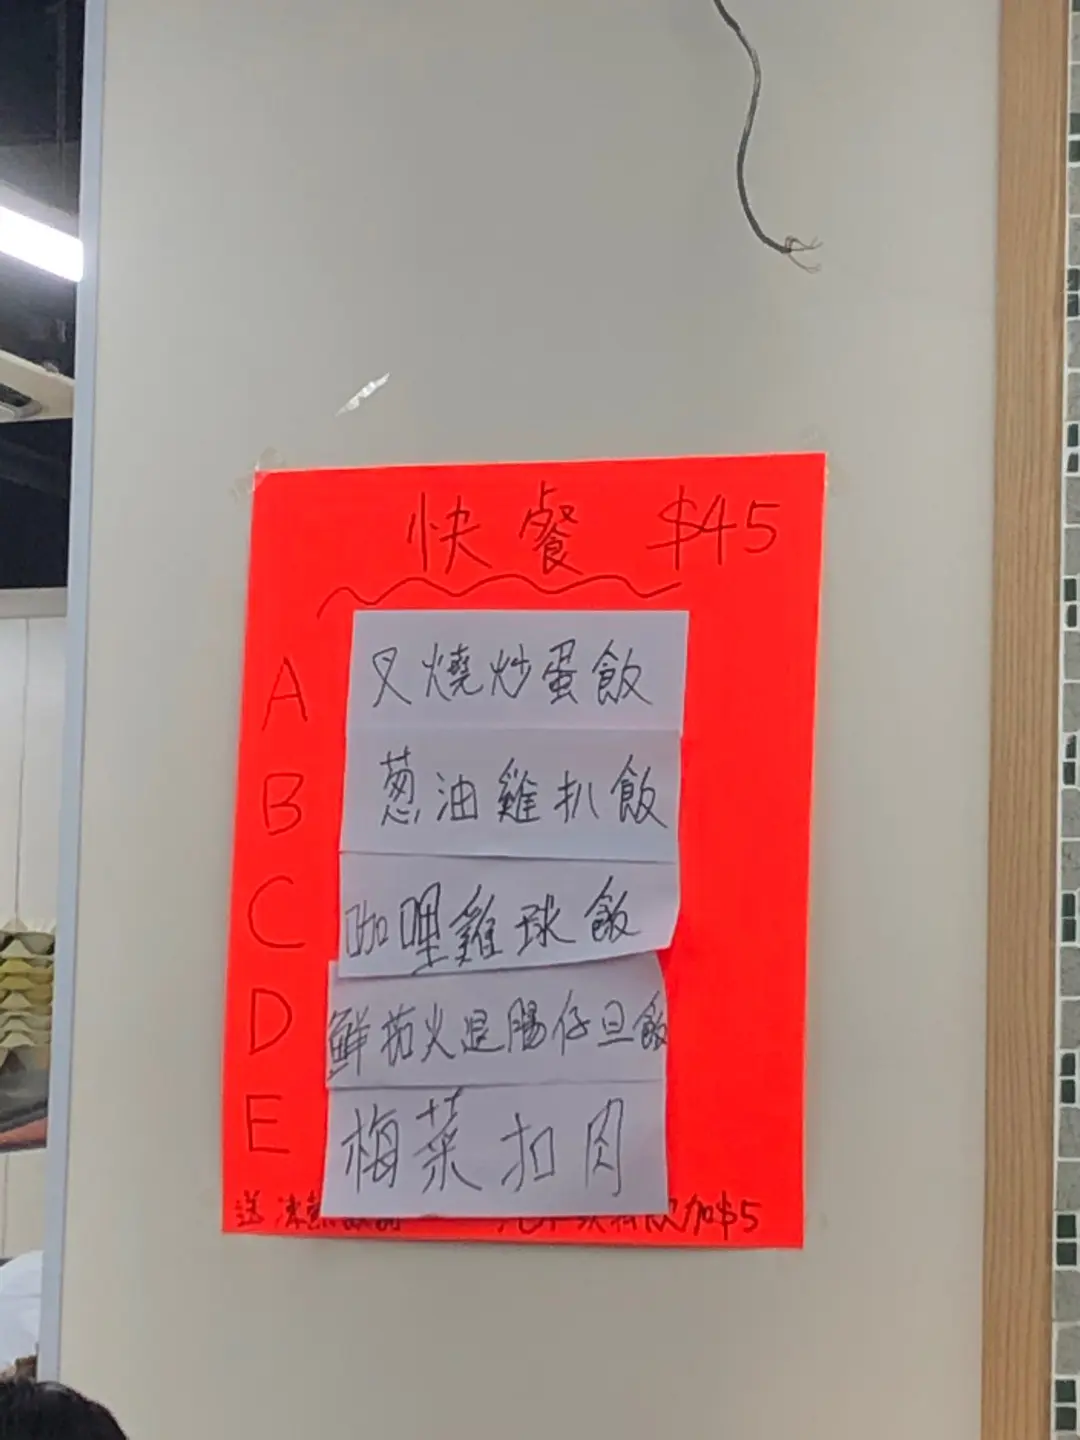 快餐 $45
A 叉燒炒蛋飯
B 葱油雞扒飯
C 咖哩雞球飯
D 鮮茄火退腸仔旦飯
E 梅菜扣肉
送 加$5